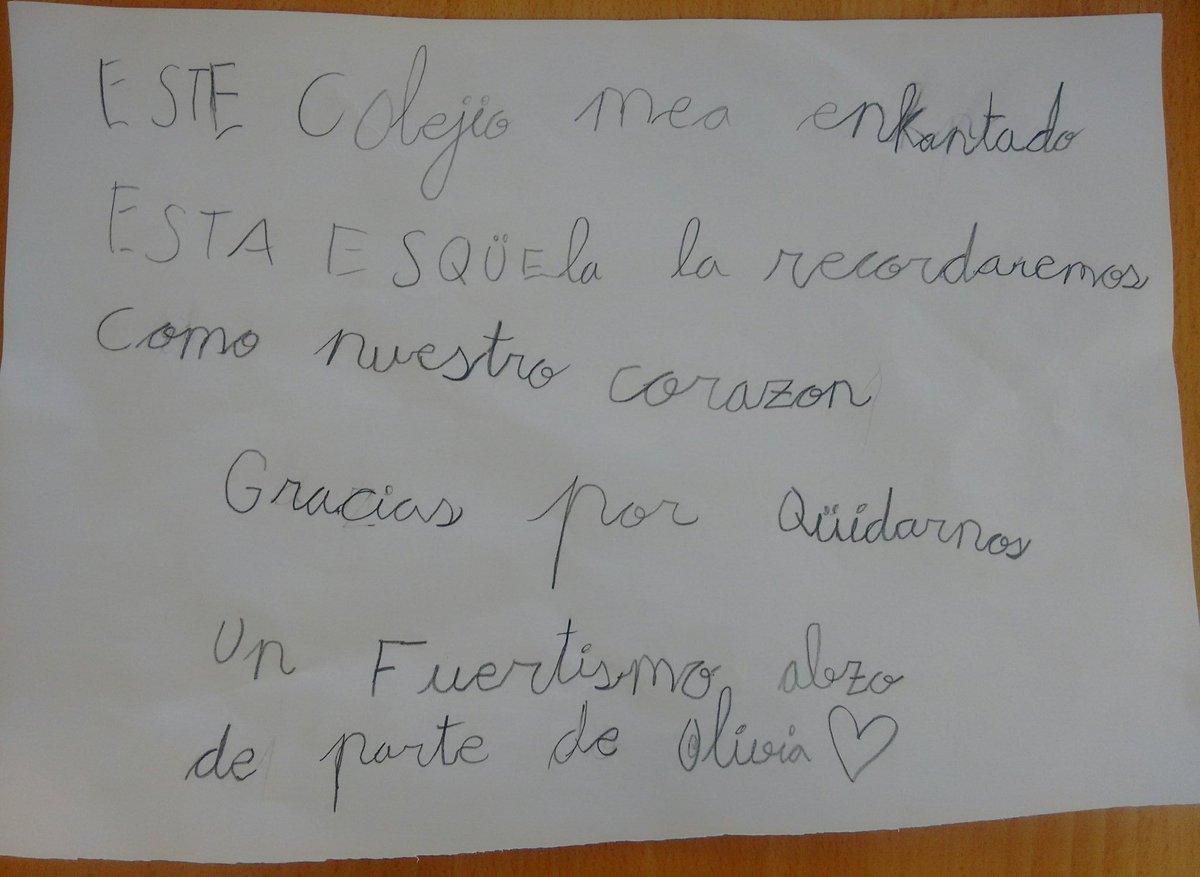 ESTE Colejio mea enkantado
ESTA ESQÜEla la recordaremos
como nuestro corazon
Gracias por Qüidarnos
un Fuertismo abzo
de parte de Olivia